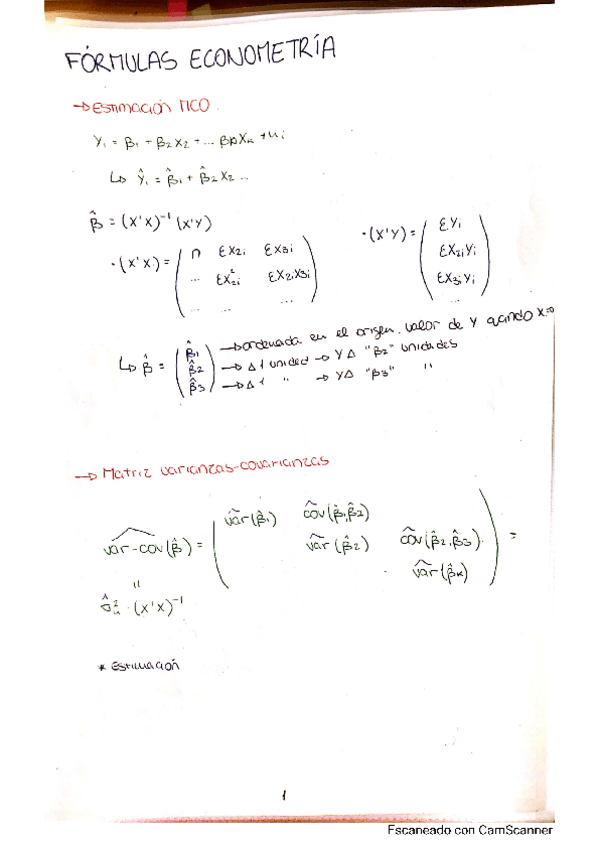 FÓRMULAS ECONOMETRÍA
→ Estimación MCO
Yi = β1 + β2X2 + ... βkXk + ui
↳ Ŷi = β̂1 + β̂2X2 ...
β̂ = (X'X)⁻¹ (X'Y)
· (X'X) = ( n ΣX2i ΣX3i
... ΣX²2i ΣX2iX3i
... ... ... )
· (X'Y) = ( ΣYi
ΣX2iYi
ΣX3iYi
... )
↳ β̂ = ( β̂1 → ordenada en el origen. valor de Y quando X=0
β̂2 → Δ1 unided → YΔ "β2" unidades
β̂3 ) → Δ1 " → YΔ "β3" "
→ Matriz varianzas-covarianzas
var-cov(β̂) = ( var(β̂1) cov(β̂1,β̂2)
var(β̂2) cov(β̂2,β̂3) ) =
var(β̂k)
"
σ̂²u · (X'X)⁻¹
* Estimación
1
Escaneado con CamScanner